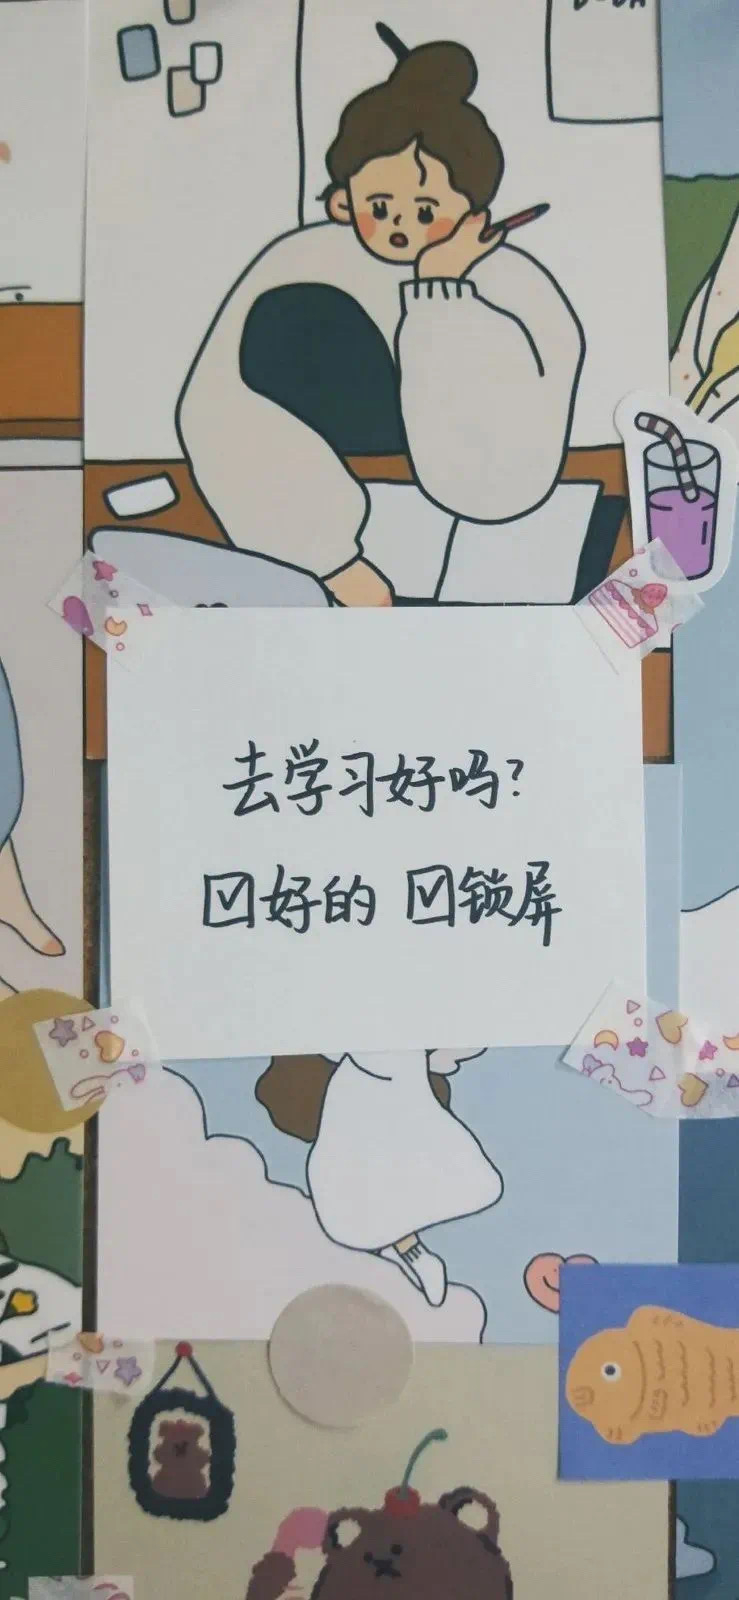 去学习好吗?
☑好的 ☑锁屏